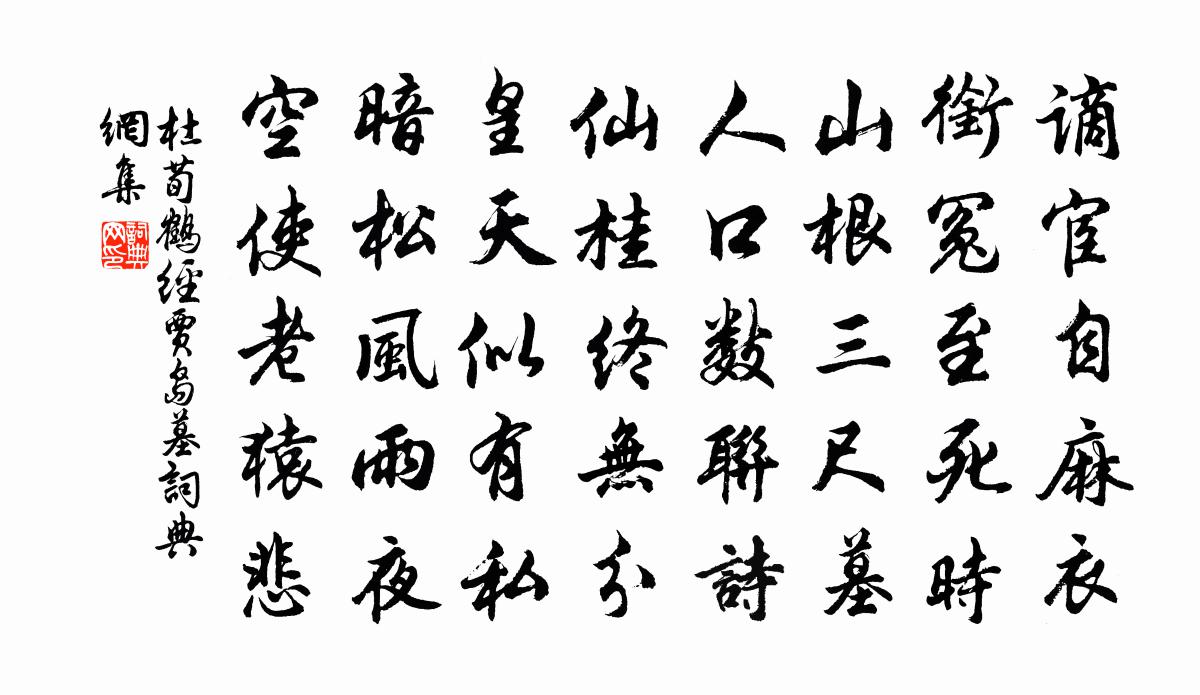 謫宦自麻衣
銜冤至死時
山根三尺墓
人口數聯詩
仙桂終無分
皇天似有私
暗松風雨夜
空使老猿悲
杜荀鶴經賈島墓詞典
網集
詞典
网印